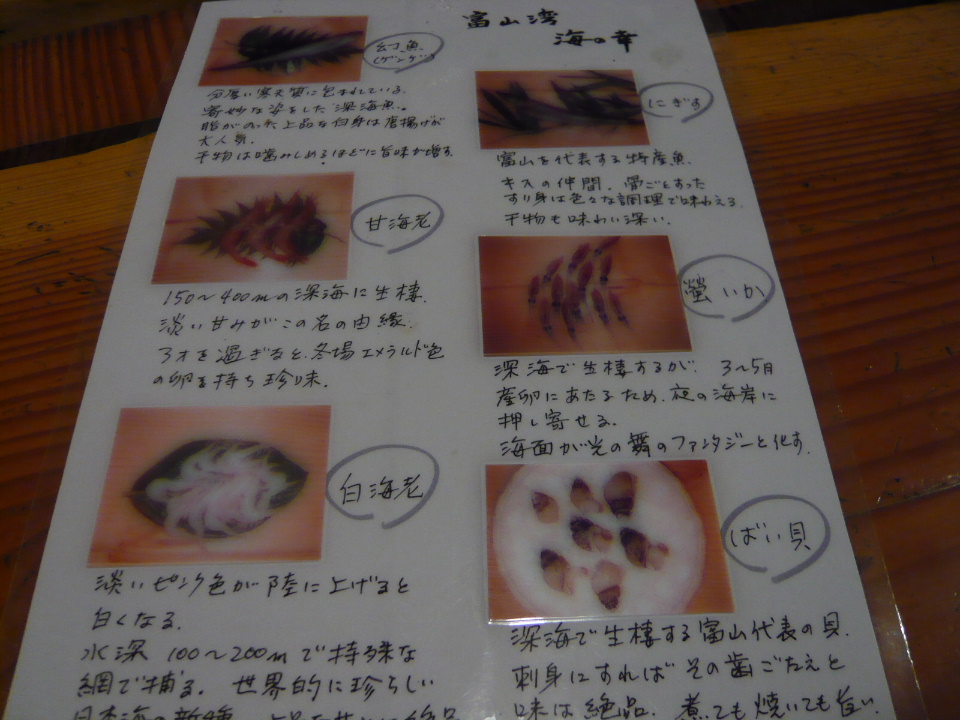 富山湾
海の幸
幻魚
(ゲンゲ)
分厚い寒天質に包まれている.
奇妙な姿をした深海魚.
脂がのった上品な白身は唐揚げが
大人気.
干物は噛みしめるほどに旨味が増す.
甘海老
150〜400mの深海に生棲.
淡い甘みがこの名の由縁.
3才を過ぎると、冬場エメラルド色
の卵を持ち珍味.
白海老
淡いピンク色が陸に上げると
白くなる.
水深100〜200mで特殊な
網で捕る. 世界的に珍らしい
日本海の
にぎす
富山を代表する特産魚.
キスの仲間. 骨ごとすった
すり身は色々な調理で味わえる.
干物も味わい深い.
螢いか
深海で生棲するが. 3〜5月
産卵にあたるため、夜の海岸に
押し寄せる.
海面が光の舞のファンタジーと化す.
ばい貝
深海で生棲する富山代表の貝.
刺身にすればその歯ごたえと
味は絶品. 煮ても焼いても旨い.